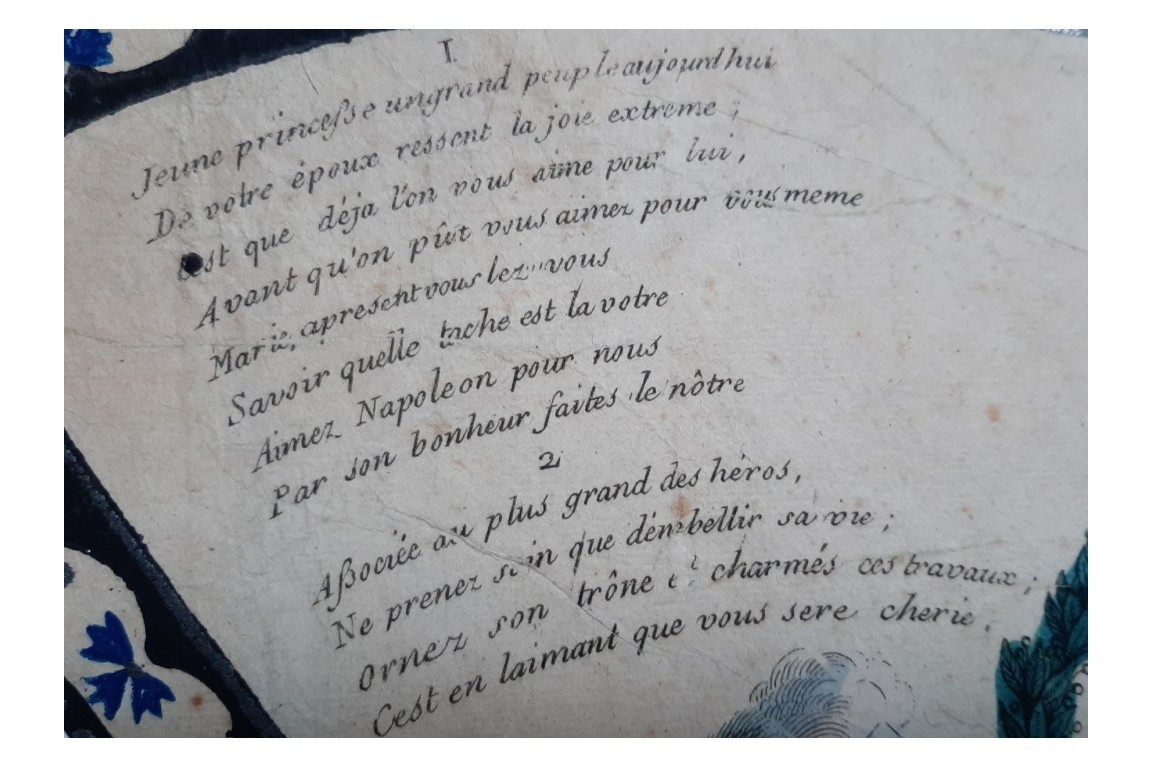 I
Jeune princeſse ungrand peupleaujourdhui
De votre époux ressent la joie extreme ;
Cest que déja l'on vous aime pour lui,
Avant qu'on pût vous aimez pour vous meme
Marie, apresent vous lez vous
Savoir quelle tache est la votre
Aimez Napoleon pour nous
Par son bonheur faites le nôtre
2
Aſsociée au plus grand des héros,
Ne prenez soin que démbellir sa vie ;
ornez son trône et charmés ces travaux ;
Cest en laimant que vous sere cherie.